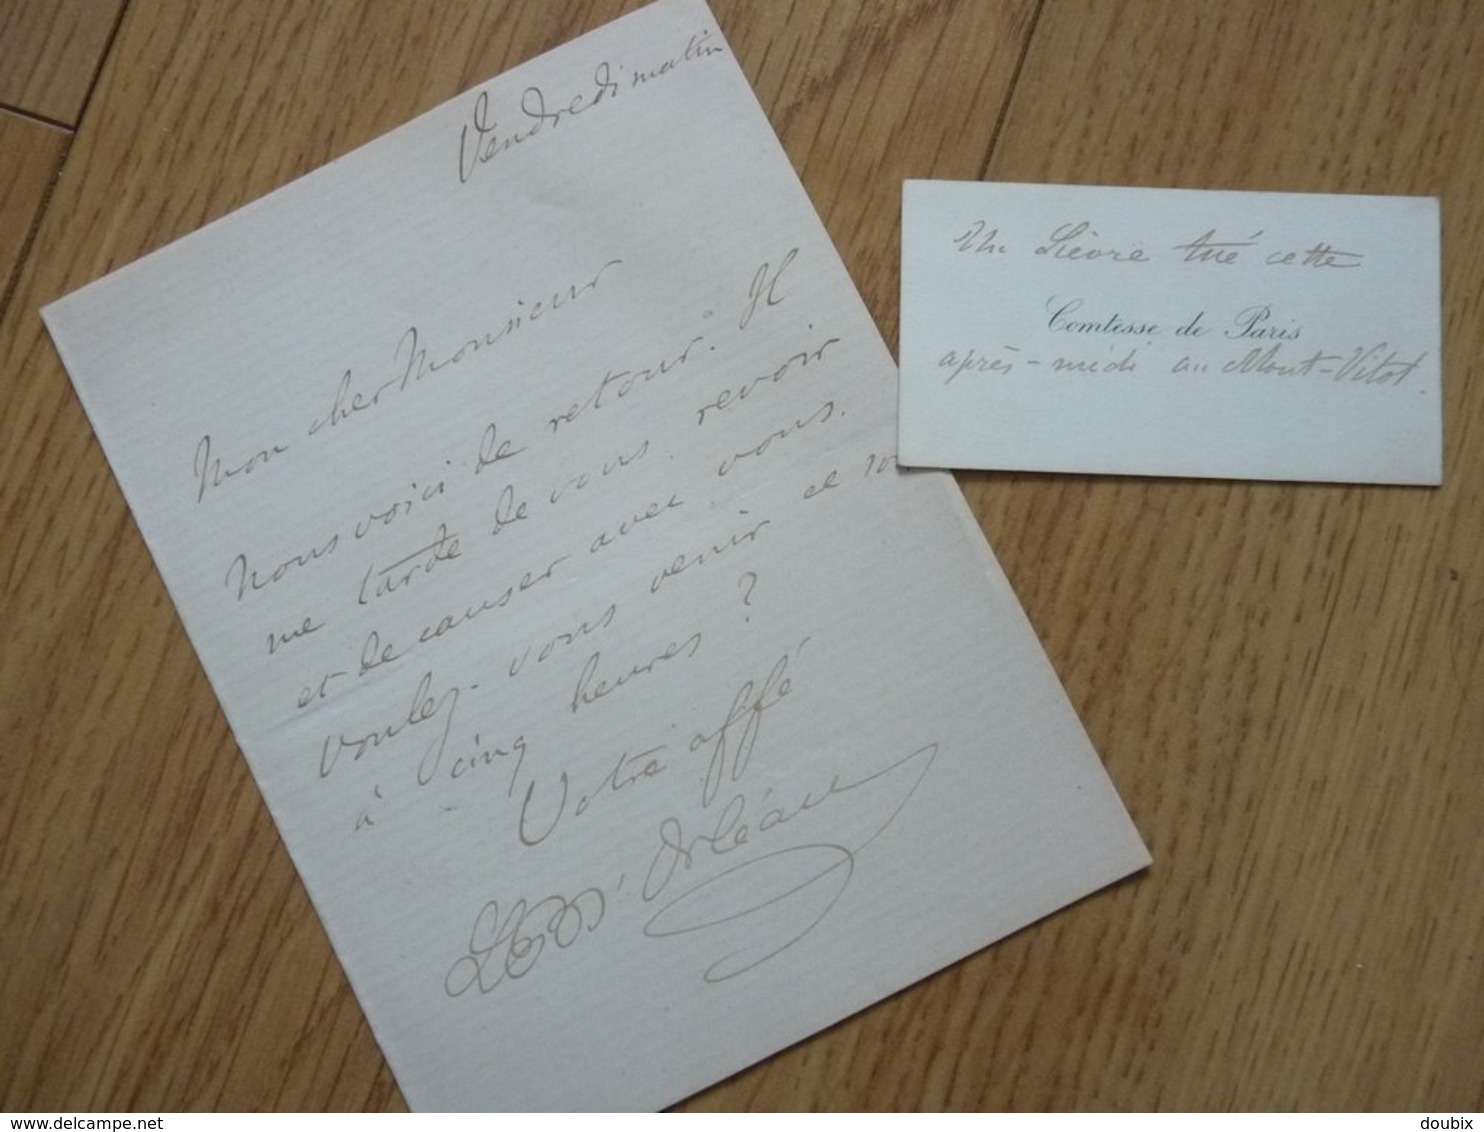 Vendredi matin
Mon cher Monsieur
Nous voici de retour. Il
me tarde de vous revoir
et de causer avec vous.
Voulez-vous venir ce
à cinq heures ?
Votre affé
d'Orléans
Un Lièvre tué cette
Comtesse de Paris
après-midi au Mont-Vitot.
www.delcampe.net
doubix